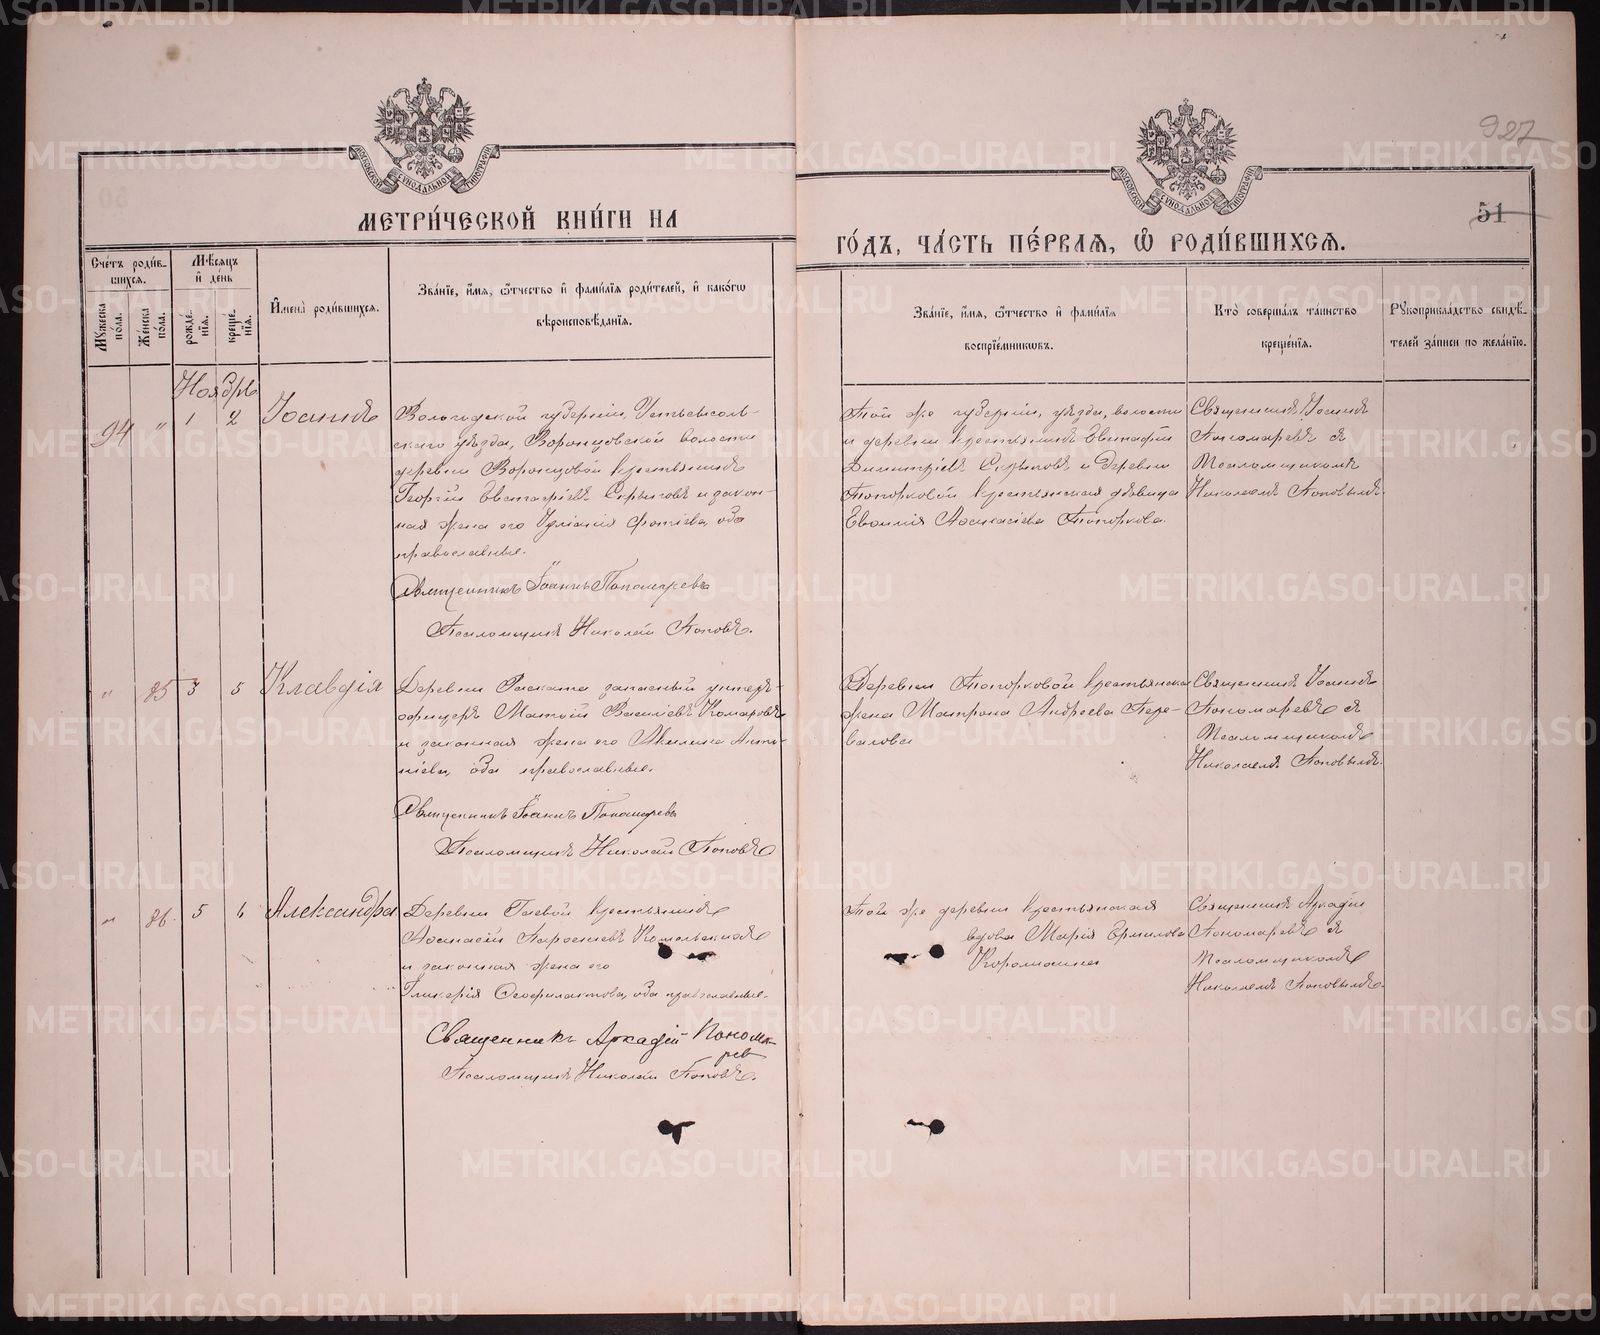 927
51
МОСКОВСКОЙ СѴНОДАЛЬНОЙ ТИПОГРАФІИ
МЕТРИ́ЧЕСКОЙ КНИ́ГИ НА
МОСКОВСКОЙ СѴНОДАЛЬНОЙ ТИПОГРАФІИ
ГО́ДЪ, ЧА́СТЬ ПЕ́РВАѦ, Ѽ РОДИ́ВШИХСѦ.
Сче́тъ роди́в-
шихсѧ.
Мꙋжеска по́ла.
Же́нска по́ла.
Мѣ́сѧцъ
и҆ де́нь
рожде́-
нїѧ.
креще́-
нїѧ.
И҆мена̀ роди́вшихсѧ.
Зва́нїе, и҆́мѧ, ѻ҆́тчество и҆ фами́лїѧ роди́телей, и҆ како́гѡ
вѣроисповѣ́данїѧ.
Зва́нїе, и҆́мѧ, ѻ҆́тчество и҆ фами́лїѧ
воспрїе́мникѡвъ.
Кто̀ соверша́лъ та́инство
креще́нїѧ.
Рꙋкоприкла́дство свидѣ́-
телей за́писи по жела́нїю.
Ноябрь
94 " 1 2 Іоаннъ
Вологодской губерніи, Устьсысоль-
скаго уѣзда, Воронцовской волости
деревни Воронцовой крестьянинъ
Георгій Евстафіевъ Скрыповъ и закон-
ная жена его Іуліанія Фотіева, оба
православные.
Священникъ Іоаннъ Пономаревъ
Псаломщикъ Николай Поповъ.
Той же губерніи, уѣзда, волости
и деревни крестьянинъ Евстафій
Димитріевъ Скрыповъ и деревни
Топорковой крестьянская дѣвица
Евѳимія Аѳанасіева Топоркова.
Священникъ Іоаннъ
Пономаревъ съ
Псаломщикомъ
Николаемъ Поповымъ.
" 85 3 5 Клавдія
Деревни запасный унтеръ-
офицеръ Матѳій Василіевъ Комаровъ
и законная жена его Акилина Анто-
ніева, оба православные.
Священникъ Іоаннъ Пономаревъ
Псаломщикъ Николай Поповъ
Деревни Топорковой крестьянская
жена Матрона Андреева Пере-
валова
Священникъ Іоаннъ
Пономаревъ съ
Псаломщикомъ
Николаемъ Поповымъ.
" 86. 5 6 Александра
Деревни Гаевой крестьянинъ
Аѳанасій
и законная жена его
Гликерія Ѳеофилактова, оба православные.
Священникъ Аркадій Понома-
ревъ
Псаломщикъ Николай Поповъ.
Той же деревни крестьянская
вдова Марія Ермилова
Священникъ Аркадій
Пономаревъ съ
Псаломщикомъ
Николаемъ Поповымъ.
METRIKI.GASO-URAL.RU